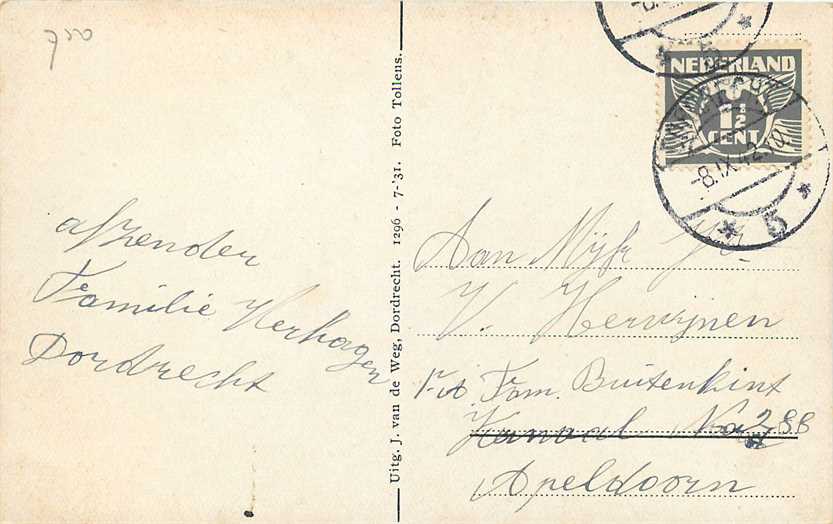 NEDERLAND
1½
CENT
-8.IX.42.
5
afzender
Familie Verhagen
Dordrecht
Uitg. J. van de Weg, Dordrecht. 1296 - 7-'31. Foto Tollens.
Aan Mijfr
V. Herwijnen
Fam. Buitenkint
Kanaal No 288
Apeldoorn